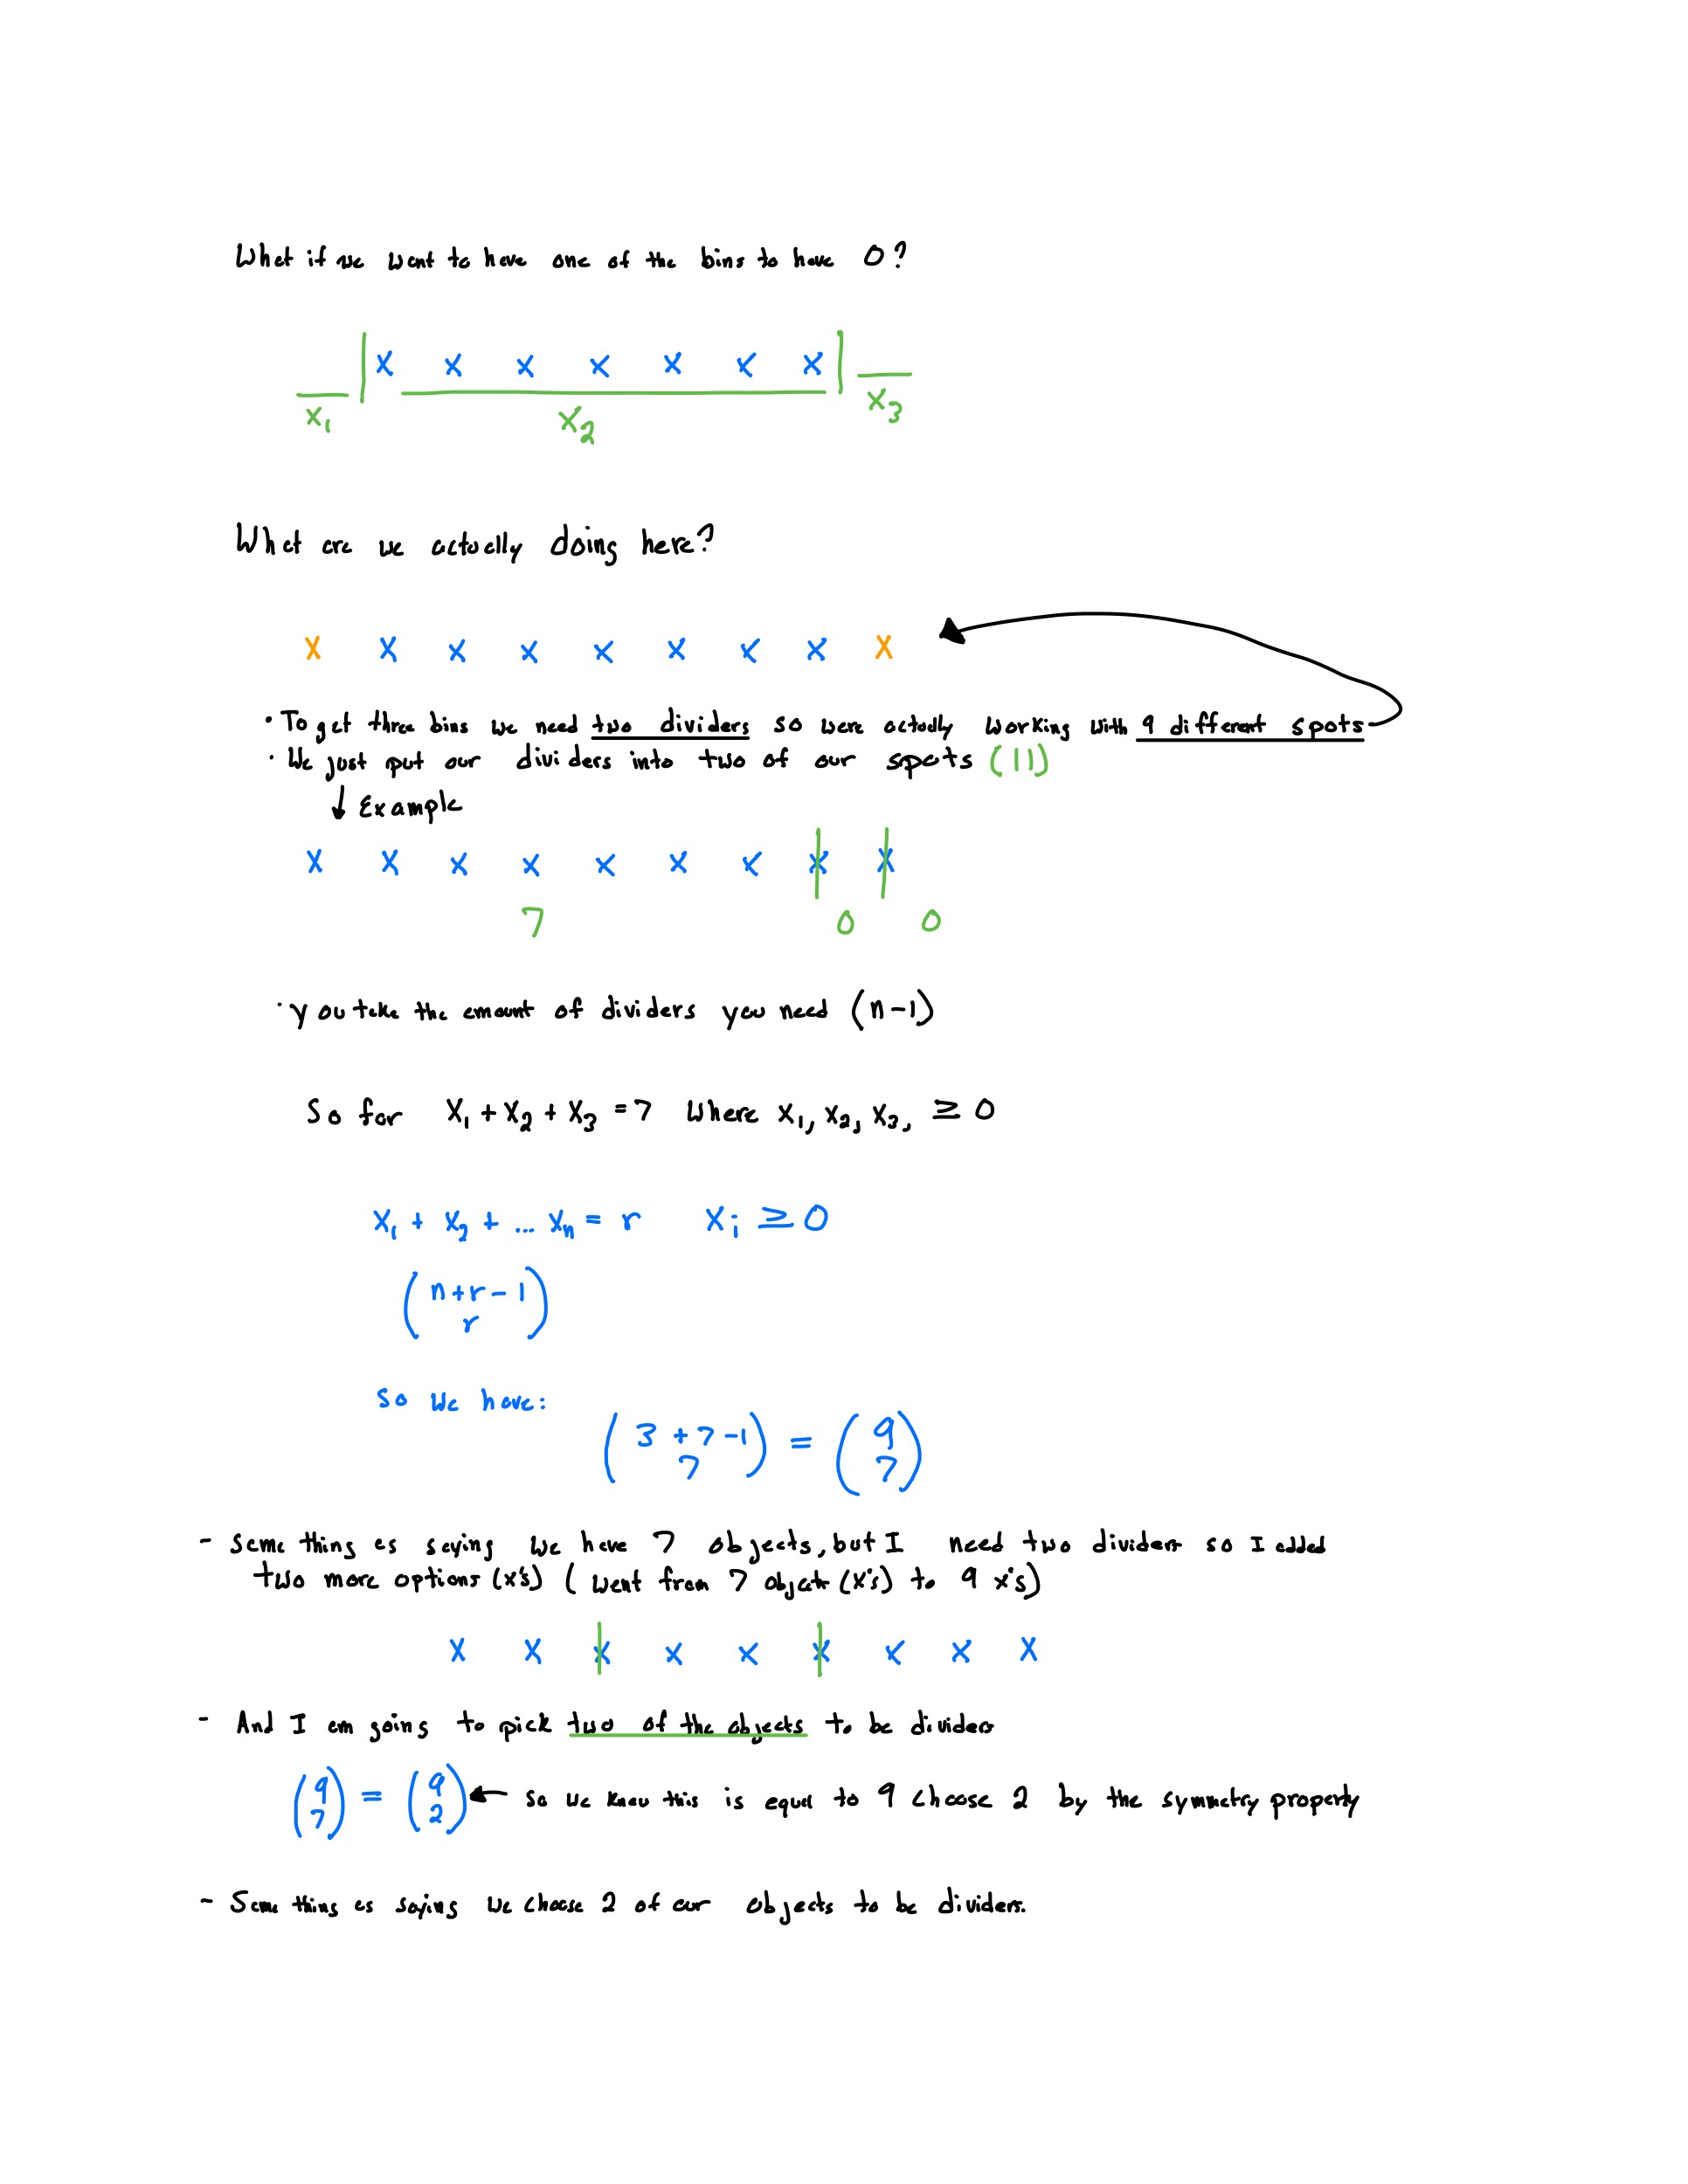 What if we want to have one of the bins to have 0?
| x x x x x x x |
x₁ x₂ x₃
What are we actually doing here?
x x x x x x x x x
· To get three bins we need two dividers so were actually working with 9 different spots
· We just put our dividers into two of our spots (||)
↓ Example
x x x x x x x x x
7 0 0
· you take the amount of dividers you need (n-1)
So for x₁ + x₂ + x₃ = 7 Where x₁, x₂, x₃, ≥ 0
x₁ + x₂ + ... xₙ = r xᵢ ≥ 0
(n+r-1
r)
So we have:
(3+7-1
7) = (9
7)
- Same thing as saying we have 7 objects, but I need two dividers so I added
two more options (x's) ( went from 7 objects (x's) to 9 x's)
x x x x x x x x x
- And I am going to pick two of the objects to be dividers
(9
7) = (9
2) ← so we know this is equal to 9 choose 2 by the symmetry property
- Same thing as saying we choose 2 of our objects to be dividers.